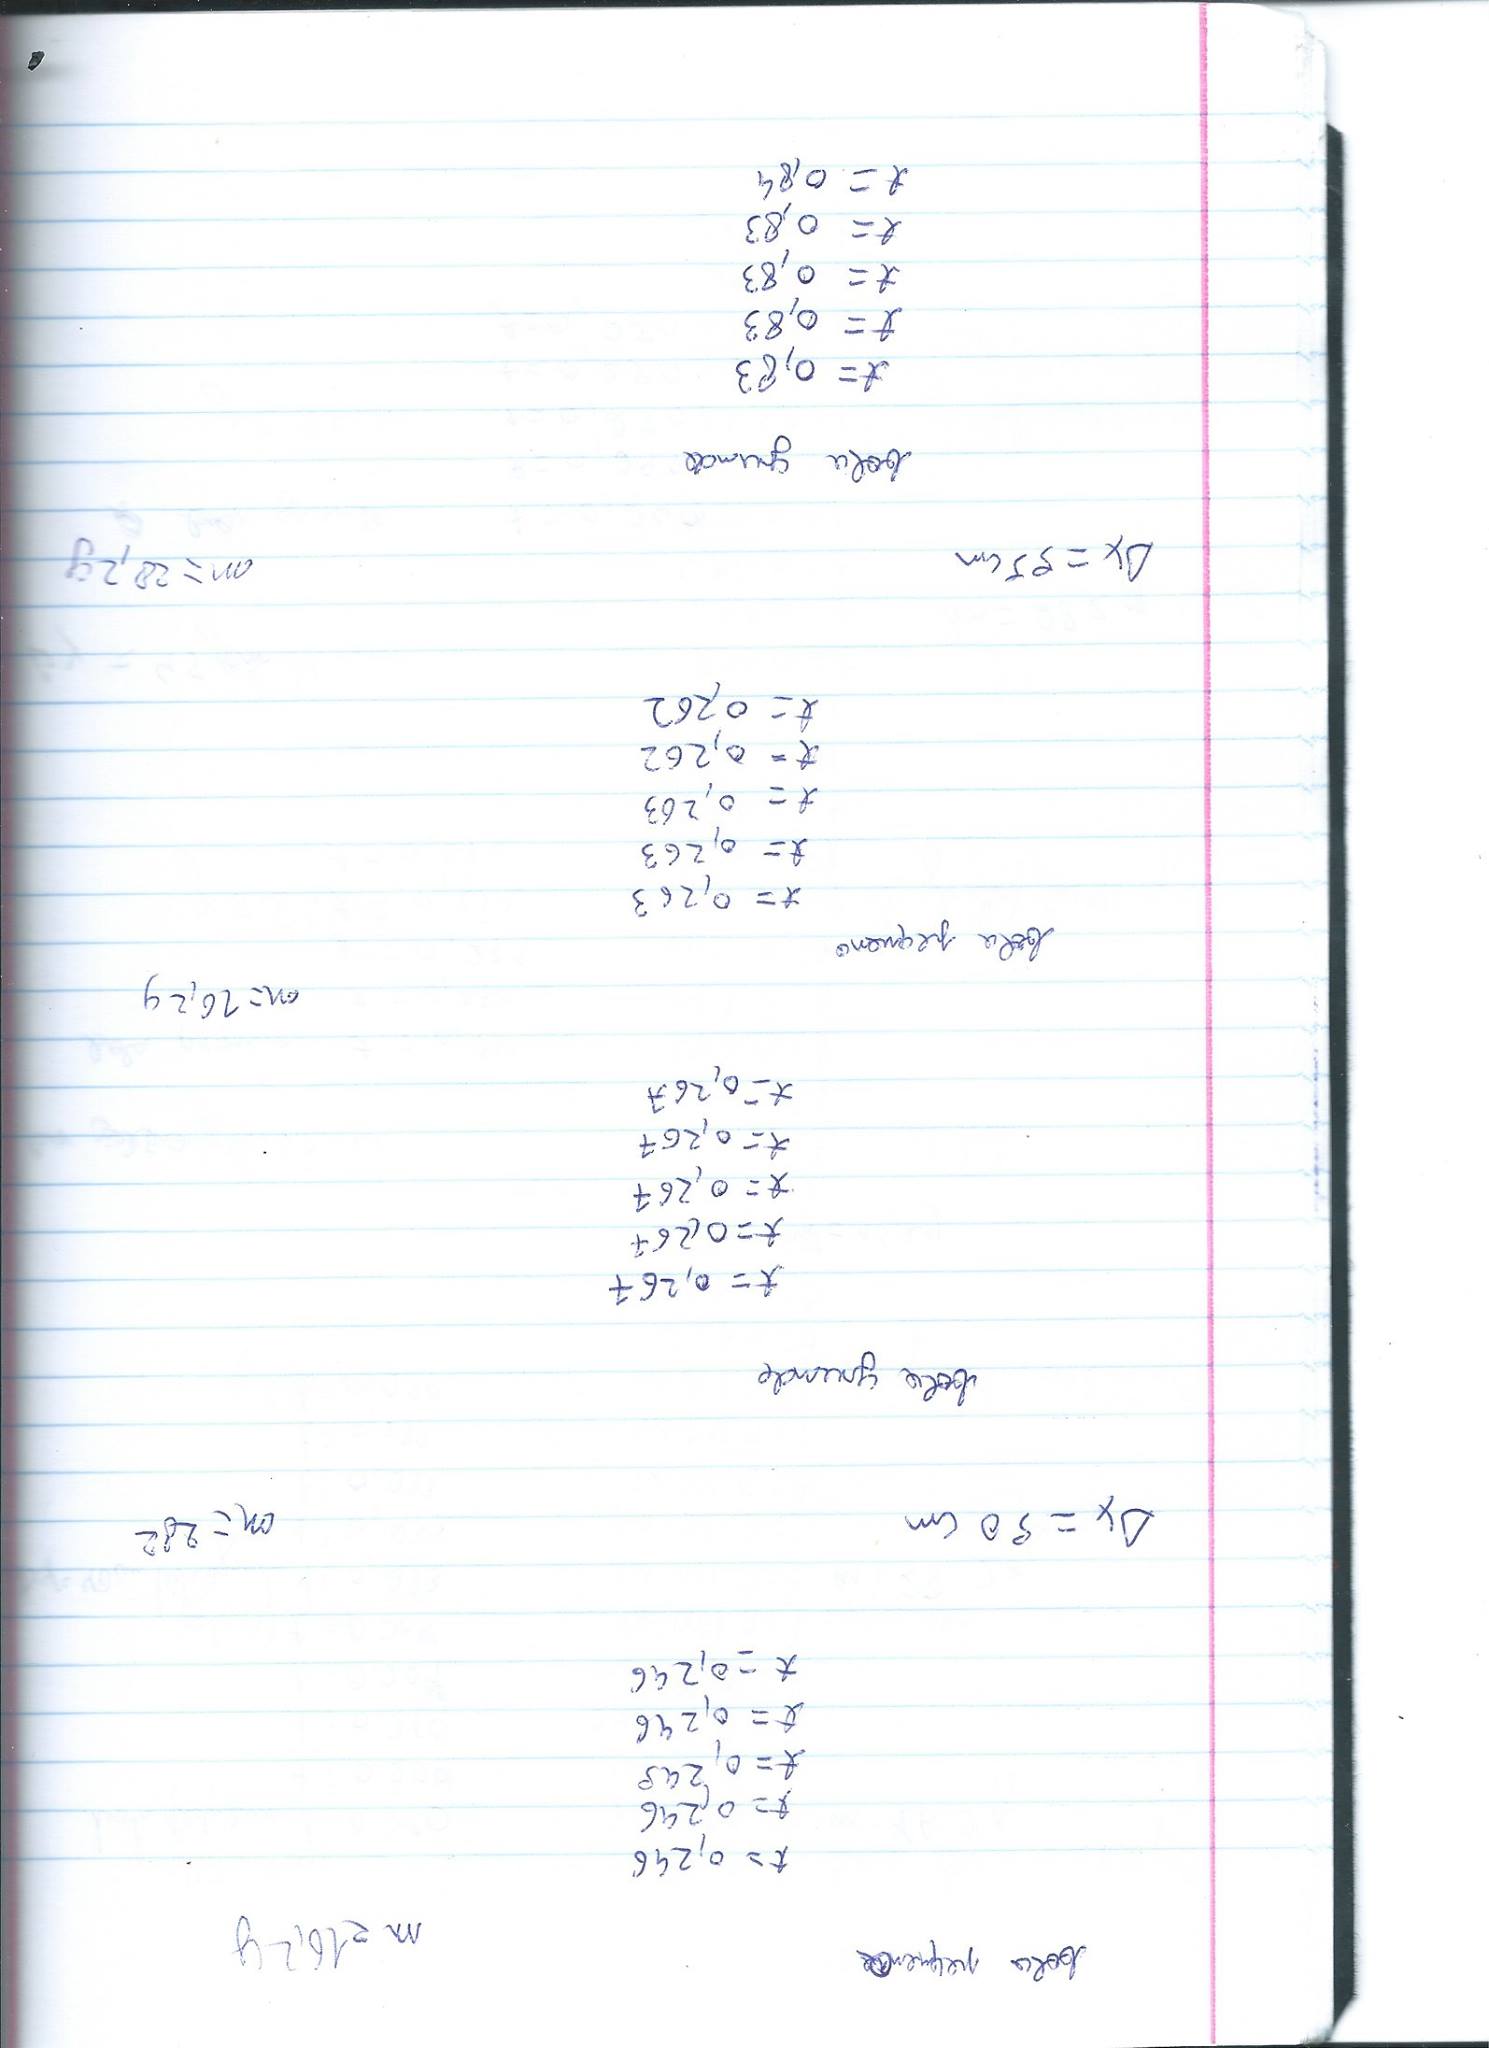 bola pequena m=16,2g
t=0,246
t=0,246
t=0,245
t=0,246
t=0,246
Δx=30 cm m=282
bola grande
t=0,267
t=0,267
t=0,267
t=0,267
t=0,267
m=16,2g
bola pequena
t=0,263
t=0,263
t=0,263
t=0,262
t=0,262
Δx=35cm m=28,2g
bola grande
t=0,83
t=0,83
t=0,83
t=0,83
t=0,84